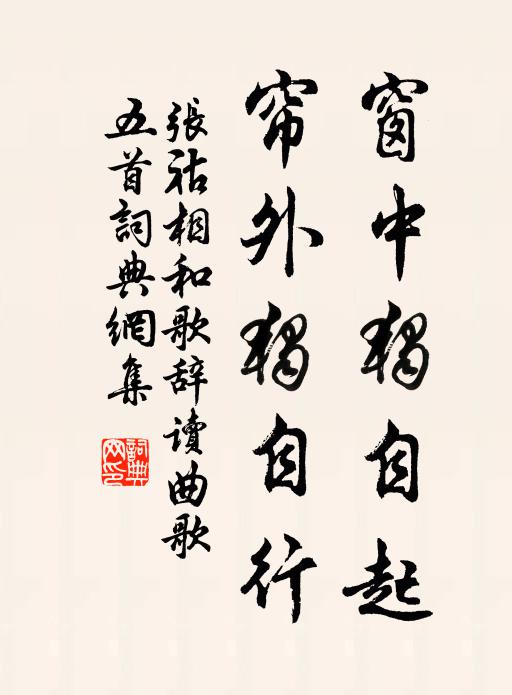 窗中獨自起
帘外獨自行
張祜相和歌辞讀曲歌
五首詞典網集
詞典
网印